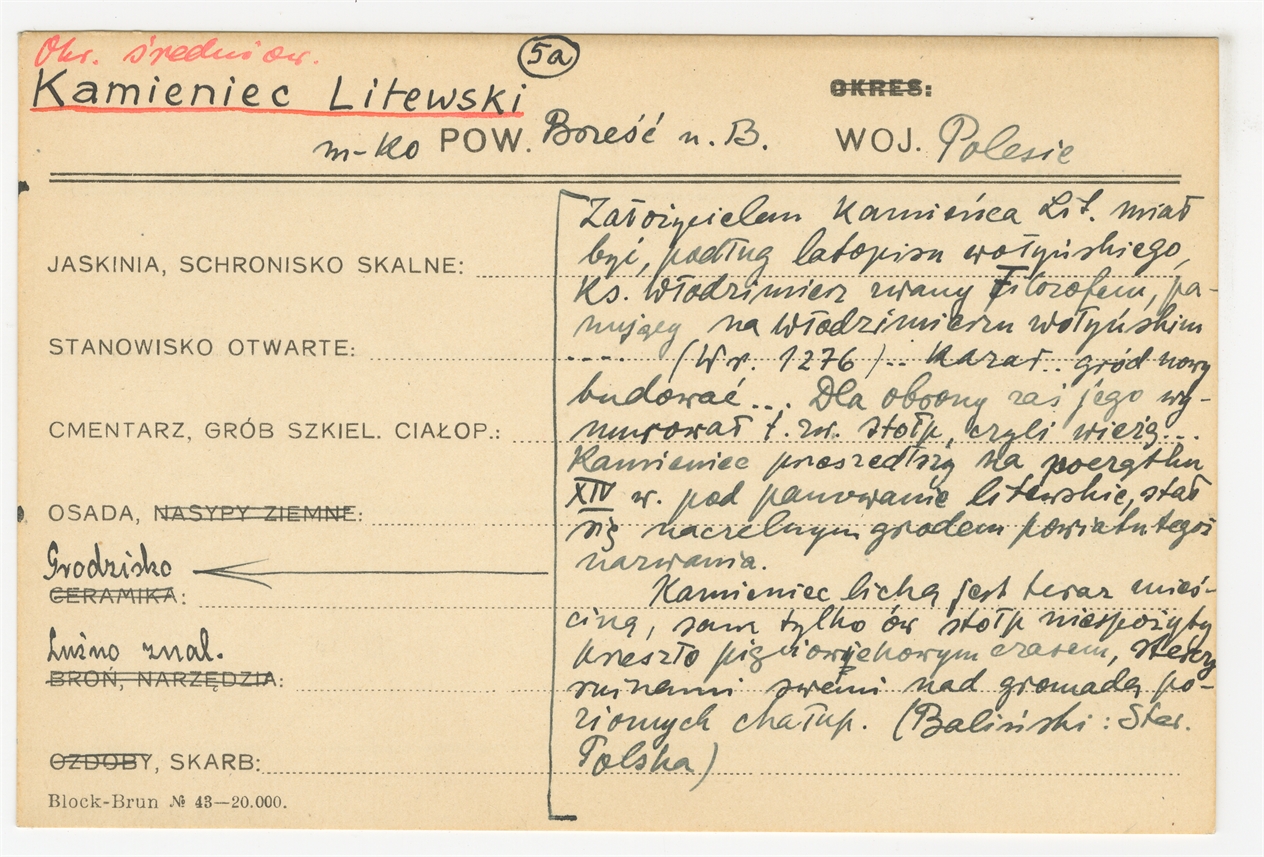 Okr. średniow.
5a
Kamieniec Litewski
OKRES:
m-ko POW. Brześć n. B. WOJ. Polesie
JASKINIA, SCHRONISKO SKALNE:
STANOWISKO OTWARTE:
CMENTARZ, GRÓB SZKIEL. CIAŁOP.:
OSADA, NASYPY ZIEMNE:
Grodzisko
CERAMIKA:
Luźno znal.
BROŃ, NARZĘDZIA:
OZDOBY, SKARB:
Block-Brun № 43—20.000.
Założycielem Kamieńca Lit. miał
być, podług latopisu wołyńskiego,
Ks. Włodzimierz zwany Filozofem, pa-
nujący na Włodzimierzu wołyńskim
.... (W r. 1276).. Kazał.. gród nowy
budować... Dla obrony zaś jego wy-
murował t. zw. stołp, czyli wieżę...
Kamieniec przeszedłszy na początku
XIV w. pod panowanie litewskie, stał
się naczelnym grodem powiatu tegoż
nazwania.
Kamieniec lichą jest teraz mieś-
ciną, sam tylko ów stołp niespożyty
przeszło pięciowiekowym czasem, sterczy
ruinami swemi nad gromadą po-
ziomych chałup. (Baliński: Star.
Polska)